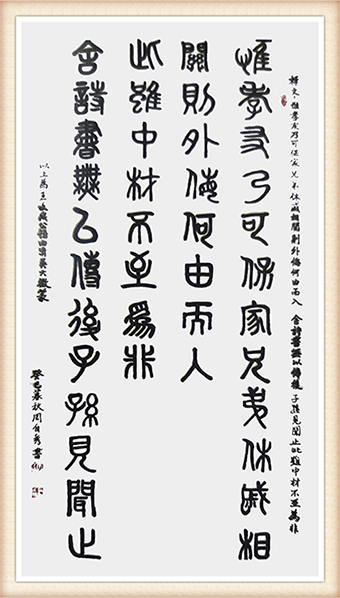 釋文:惟孝友乃可保家兄弟休戚相關則外侮何由而入 舍詩書無以傳後 子孫見聞止此雖中材不至為非
惟孝友乃可保家兄弟休戚相
關則外侮何由而入
舍詩書無㠯傳後子孫見聞止
此雖中材不至爲非
以上為 由清吴大澂篆
癸巳暮秋周自秀書